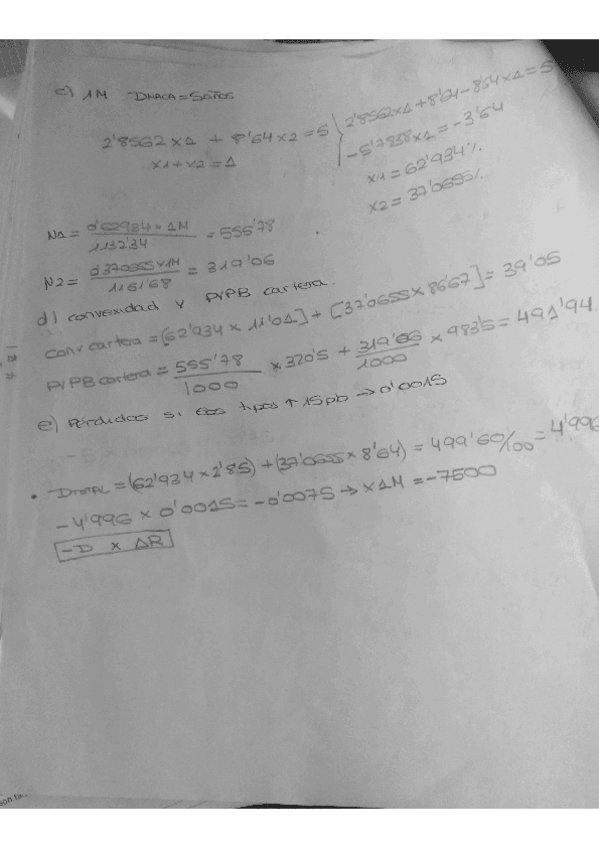 c) 1M DMACA = 5años
2'8562 x1 + 8'64 x2 = 5
x1 + x2 = 1
2'8562x1 + 8'64 - 8'64 x1 = 5
-5'7838 x1 = -3'64
x1 = 62'934%
x2 = 37'0655%
N1 = 0'62934 x 1M / 1132'34 = 555'78
N2 = 0'370655 x 1M / 1161'68 = 319'06
d) convexidad y PVPB cartera.
Conv cartera = (62'934 x 11'01] + [37'0655 x 86'67] = 39'05
PVPB cartera = 555'78 / 1000 x 320'5 + 319'06 / 1000 x 983'5 = 491'94
e) Pérdidas si los tipos ↑ 15pb → 0'0015
• DTOTAL = (62'934 x 2'85) + (37'0655 x 8'64) = 499'60/00 = 4'996
-4'996 x 0'0015 = -0'0075 → x 1M = -7500
-D x ΔR
son tu...